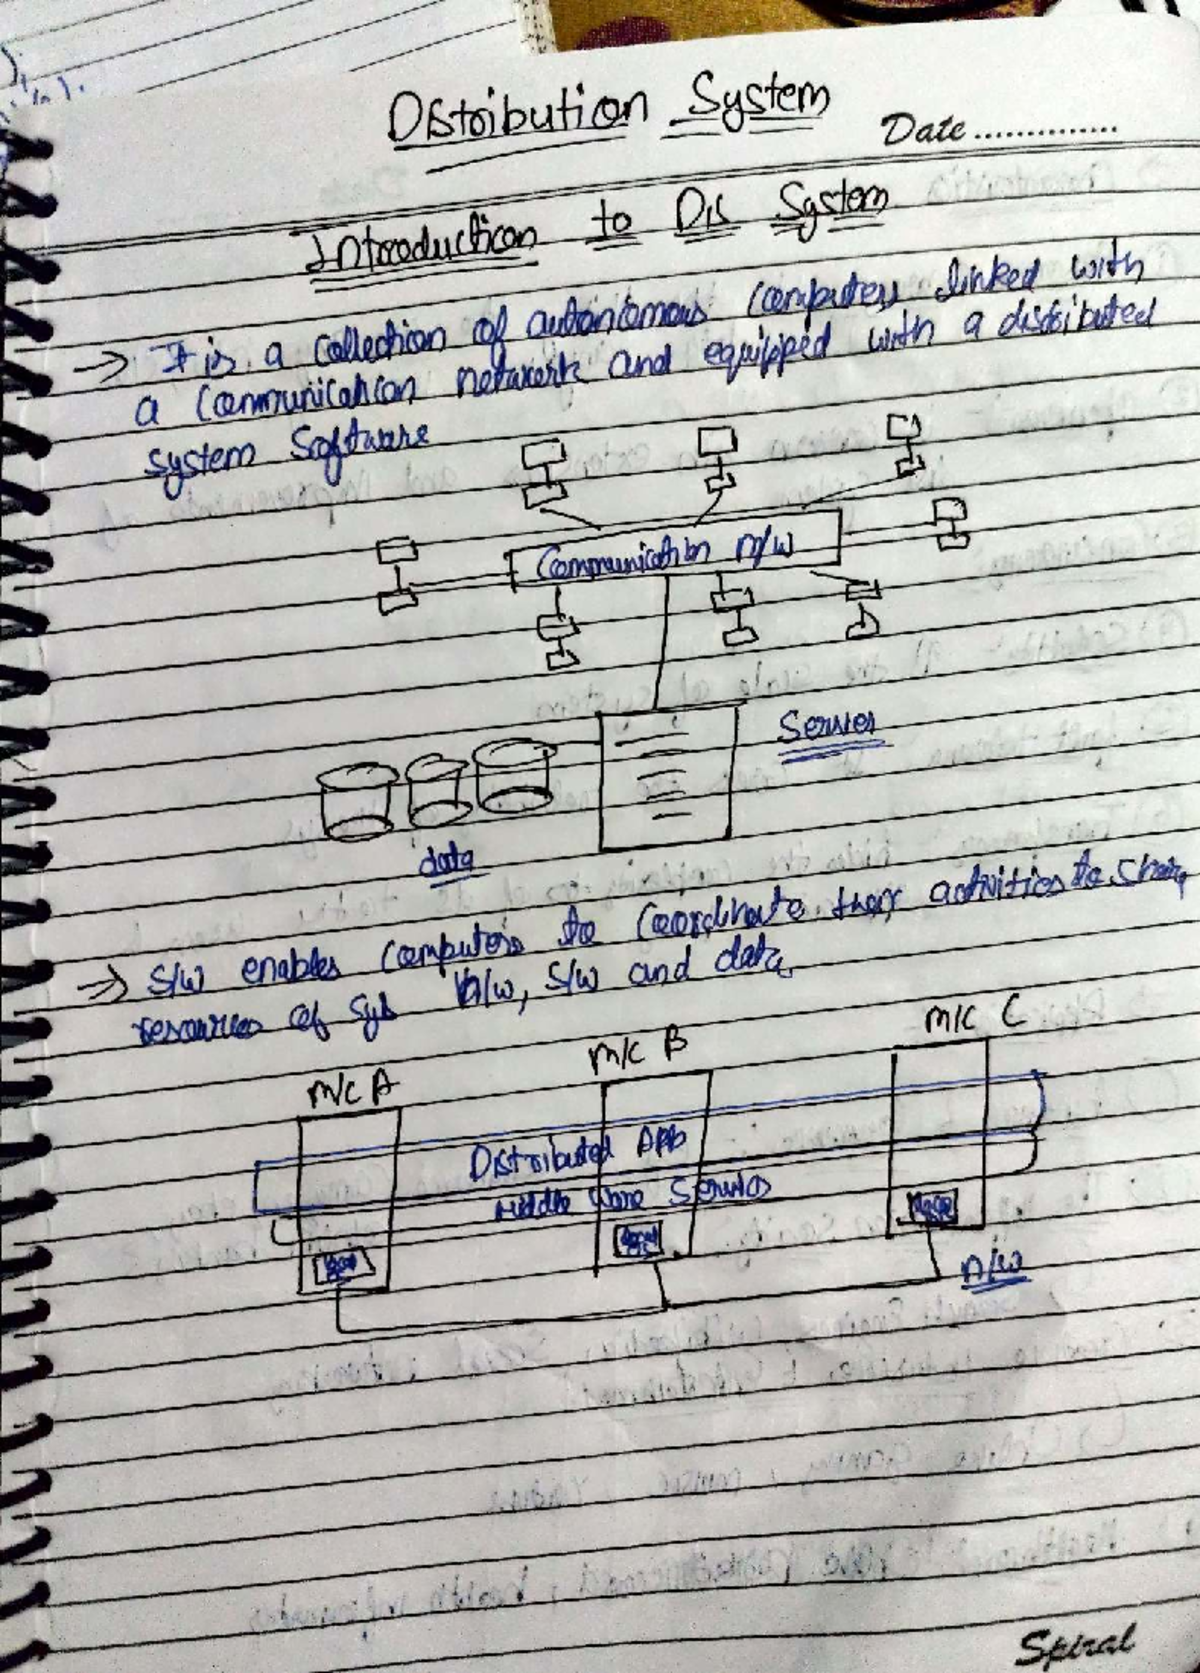 Distribution System
Date ...............
Introduction to Dis System
→ It is a collection of autonomous computers linked with
a communication network and equipped with a distributed
system software
Communication n/w
Server
data
⇒ S/W enables computers to coordinate their activities to share
resources of sys h/w, s/w and data
M/C A
M/C B
M/C C
Distributed App
Middle ware Service
n/w
Spiral